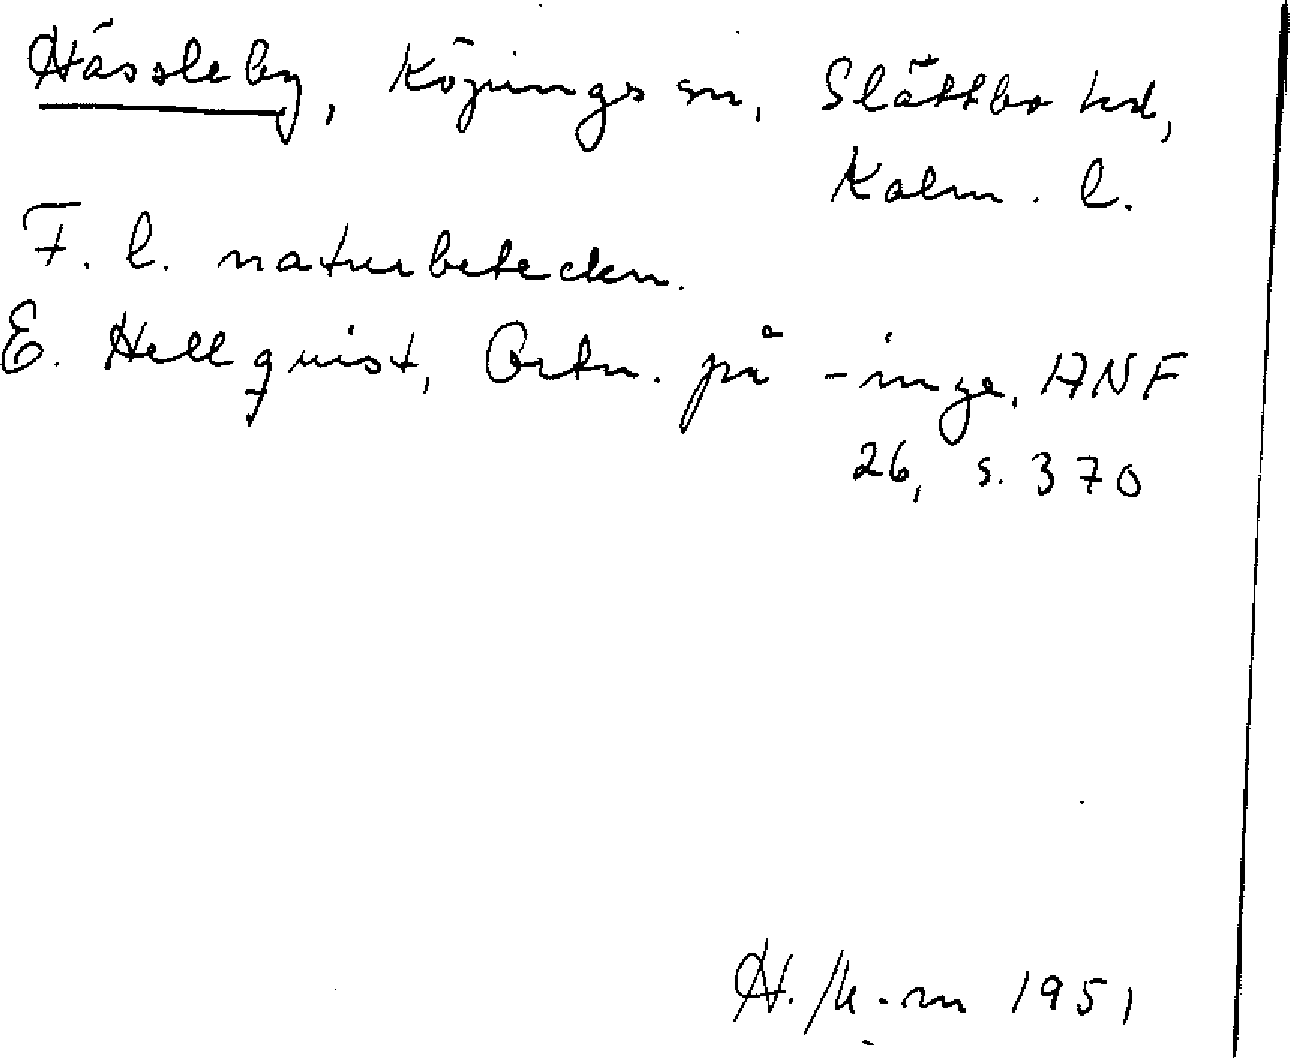 Hässleby, Köpings sn, Slättbo hd,
Kalm. l.
F. l. naturbeteckn.
E. Hellquist, Ortn. på -inge, ANF
26, s. 370
1951